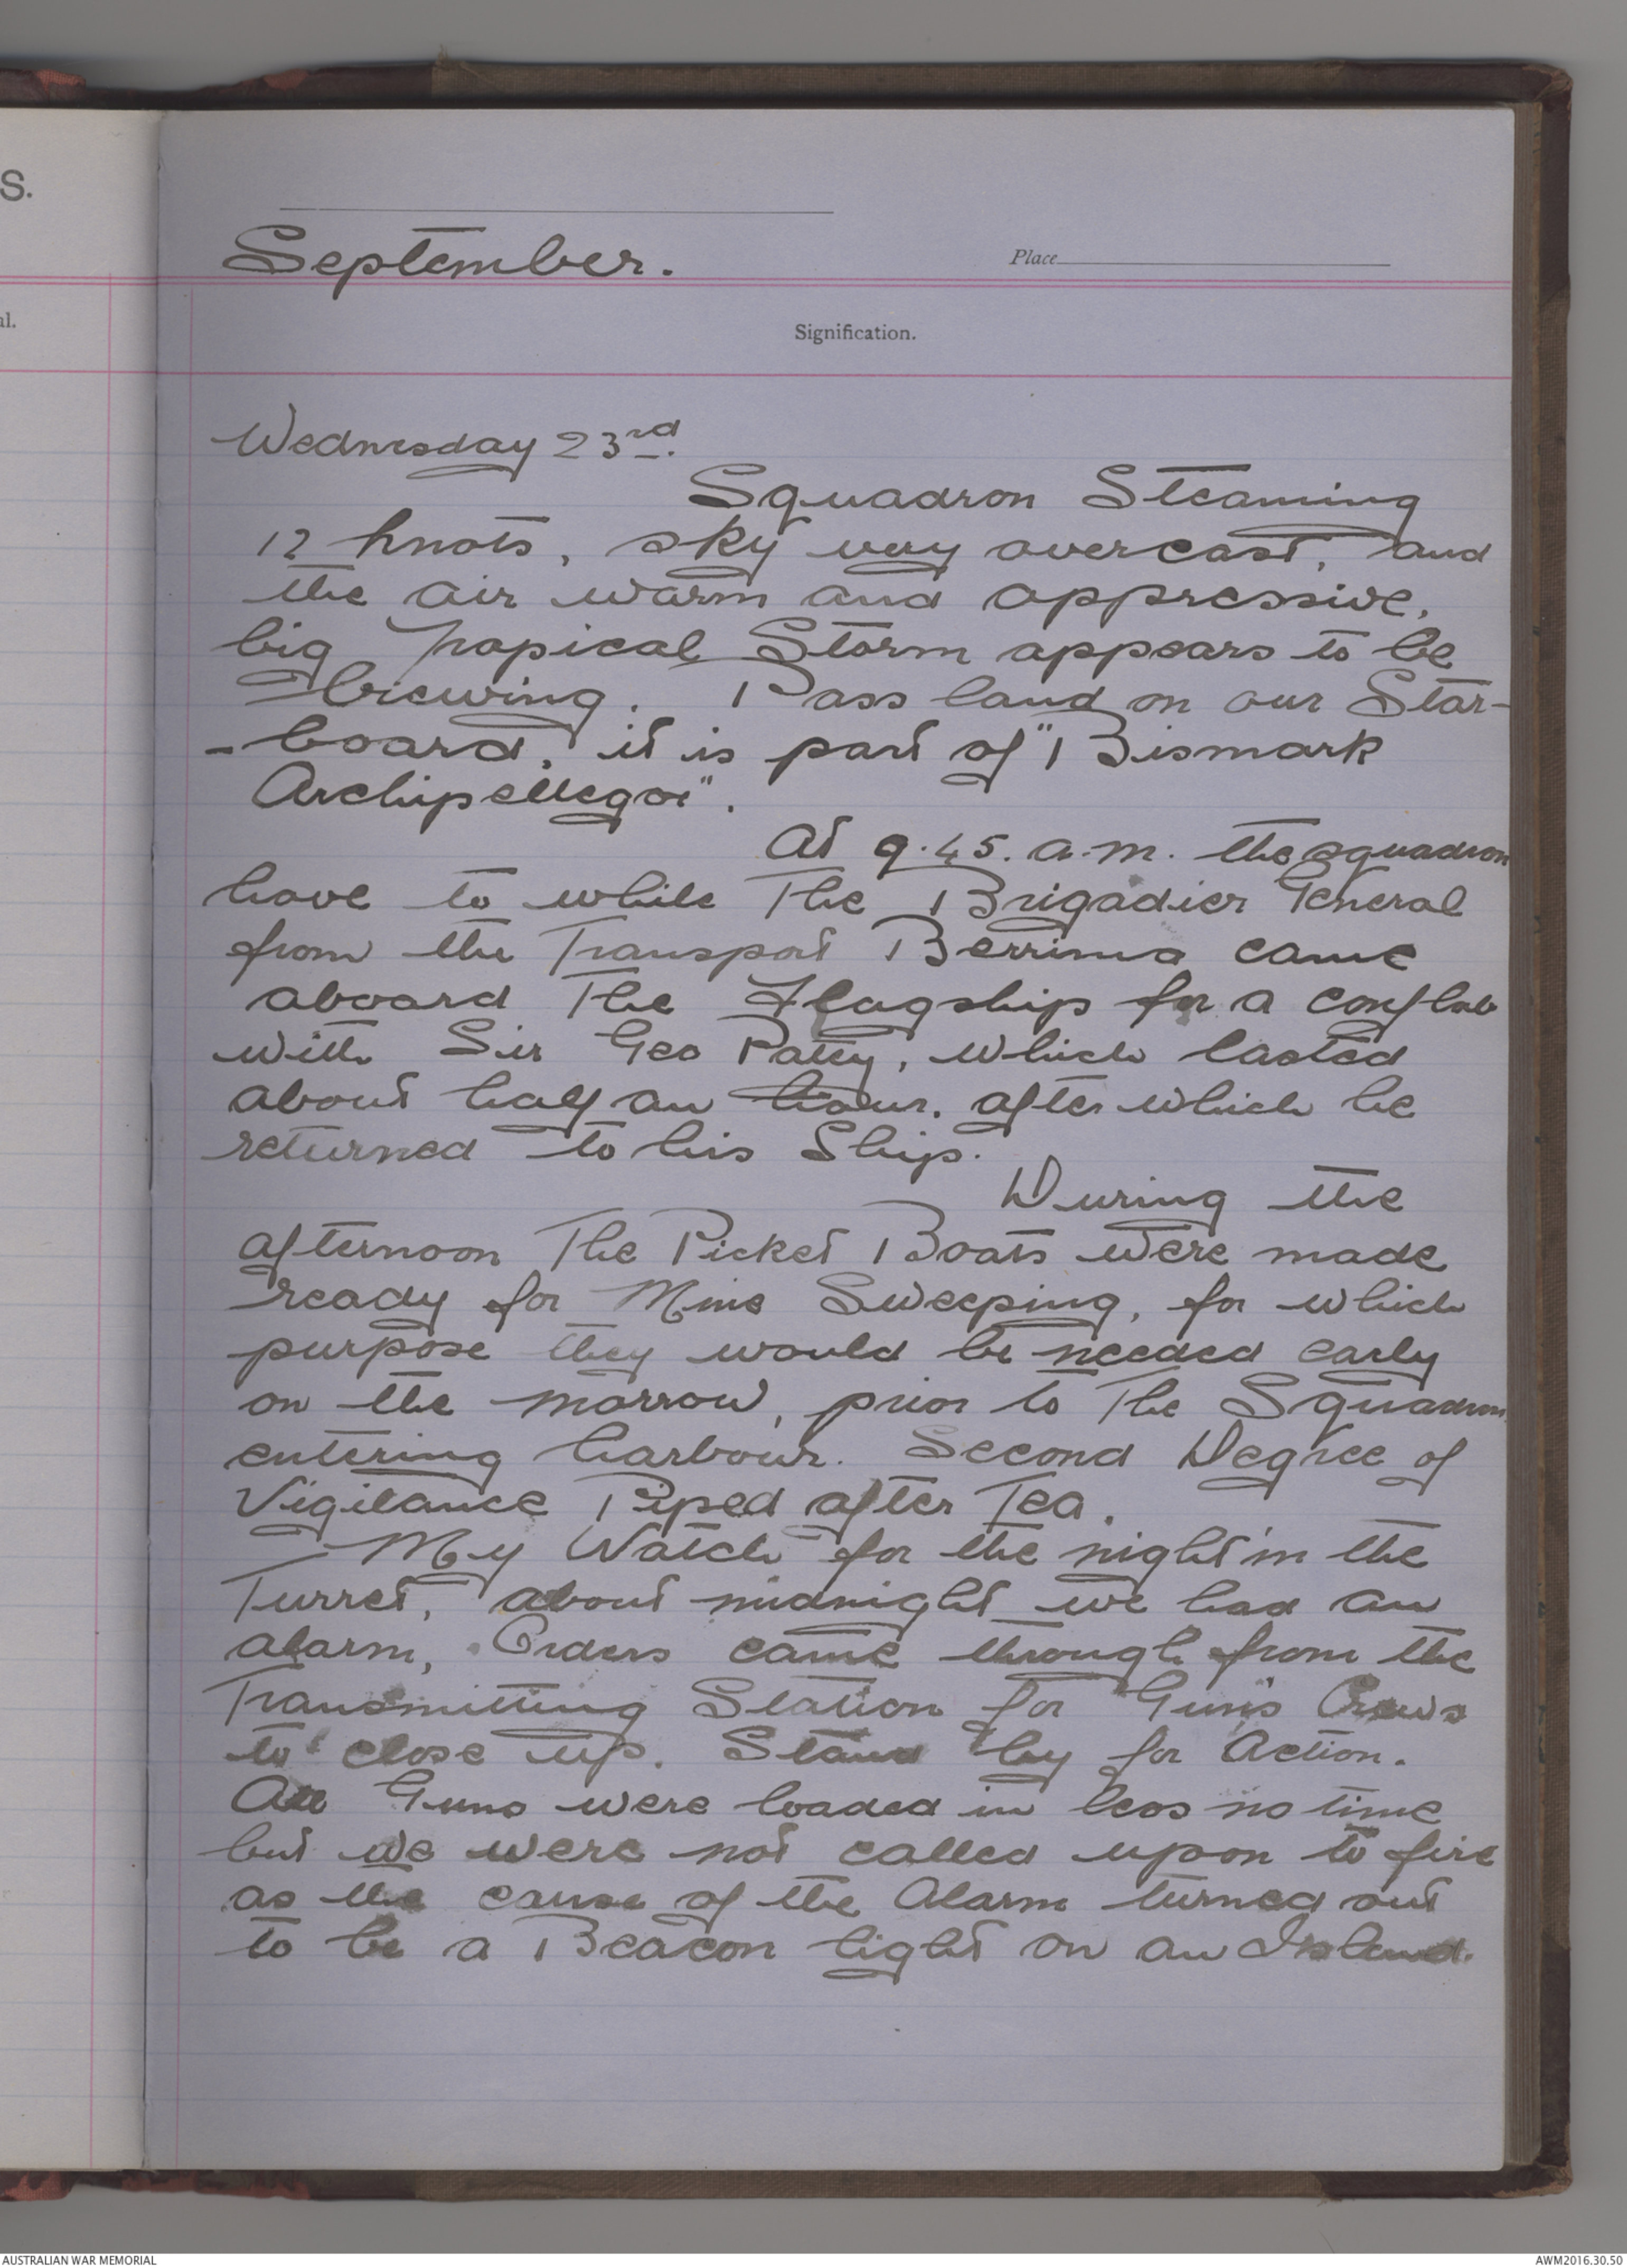 S.
al.
September.
Place
Signification.
Wednesday 23rd.
Squadron Steaming
12 knots, sky very overcast, and
the air warm and oppressive,
big Tropical Storm appears to be
brewing. Pass land on our Star-
-board, it is part of "Bismark
Archipellegoe".
At 9.45. a.m. the squadron
hove to while The Brigadier General
from the Transport Berrima came
aboard The Flagship for a conflab
with Sir Geo Patey, which lasted
about half an hour. after which he
returned to his Ship.
During the
afternoon The Picket Boats were made
ready for Mine Sweeping, for which
purpose they would be needed early
on the morrow, prior to The Squadron
entering harbour. Second Degree of
Vigilance Piped after Tea.
My Watch for the night in the
Turret, about midnight we had an
alarm, Orders came through from the
Transmitting Station for "Gun's Crews
to" close up. Stand by for Action.
All Guns were loaded in less no time
but we were not called upon to fire
as the cause of the Alarm turned out
to be a Beacon light on an Island.
AUSTRALIAN WAR MEMORIAL
AWM2016.30.50